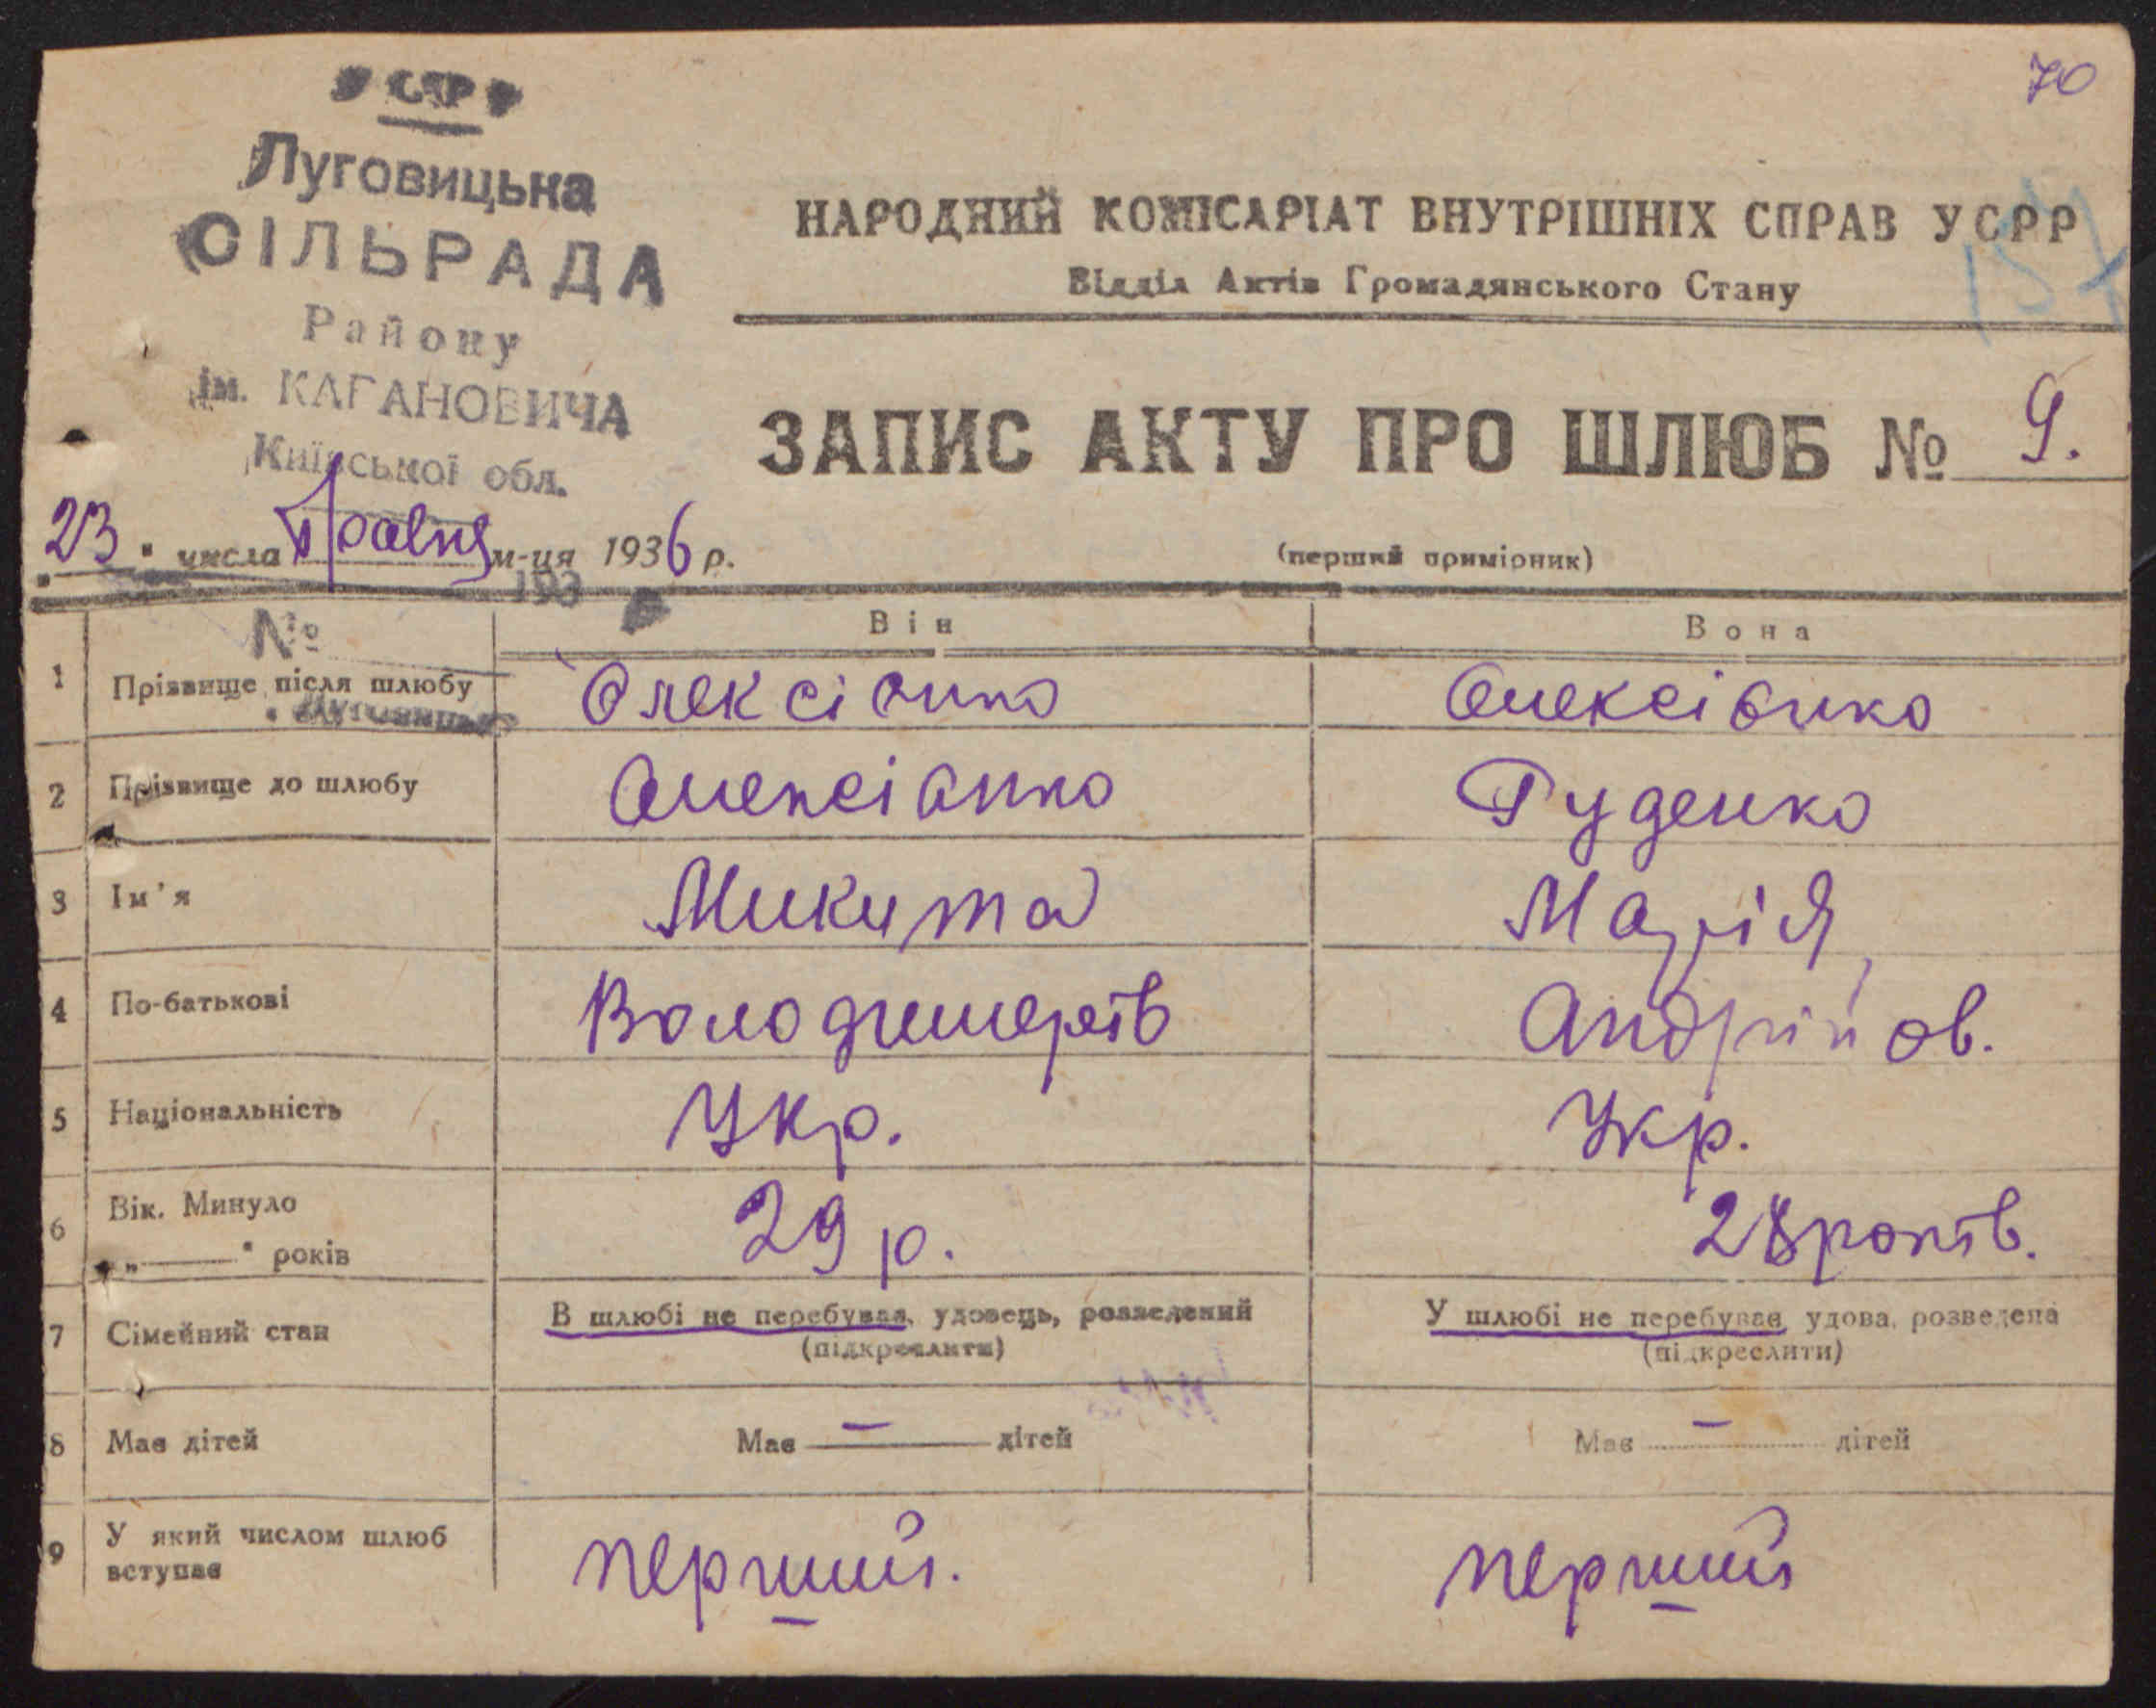 УСРР
70
Луговицька
СІЛЬРАДА
Району
ім. КАГАНОВИЧА
Київської обл.
НАРОДНИЙ КОМІСАРІАТ ВНУТРІШНІХ СПРАВ УСРР
Відділ Актів Громадянського Стану
ЗАПИС АКТУ ПРО ШЛЮБ № 9.
(перший примірник)
„23" числа Травня м-ця 1936 р.
193
№
Він
Вона
1 Прізвище після шлюбу Олексієнко Олексієнко
2 Прізвище до шлюбу Олексієнко Руденко
3 Ім'я Микита Марія
4 По-батькові Володимерів Андрійов.
5 Національність Укр. Укр.
6 Вік. Минуло 29 р. 28 років.
„——" років
7 Сімейний стан В шлюбі не перебував, удовець, розведений У шлюбі не перебував, удова, розведена
(підкреслити) (підкреслити)
8 Має дітей Має — дітей Має — дітей
9 У який числом шлюб
вступає перший. перший